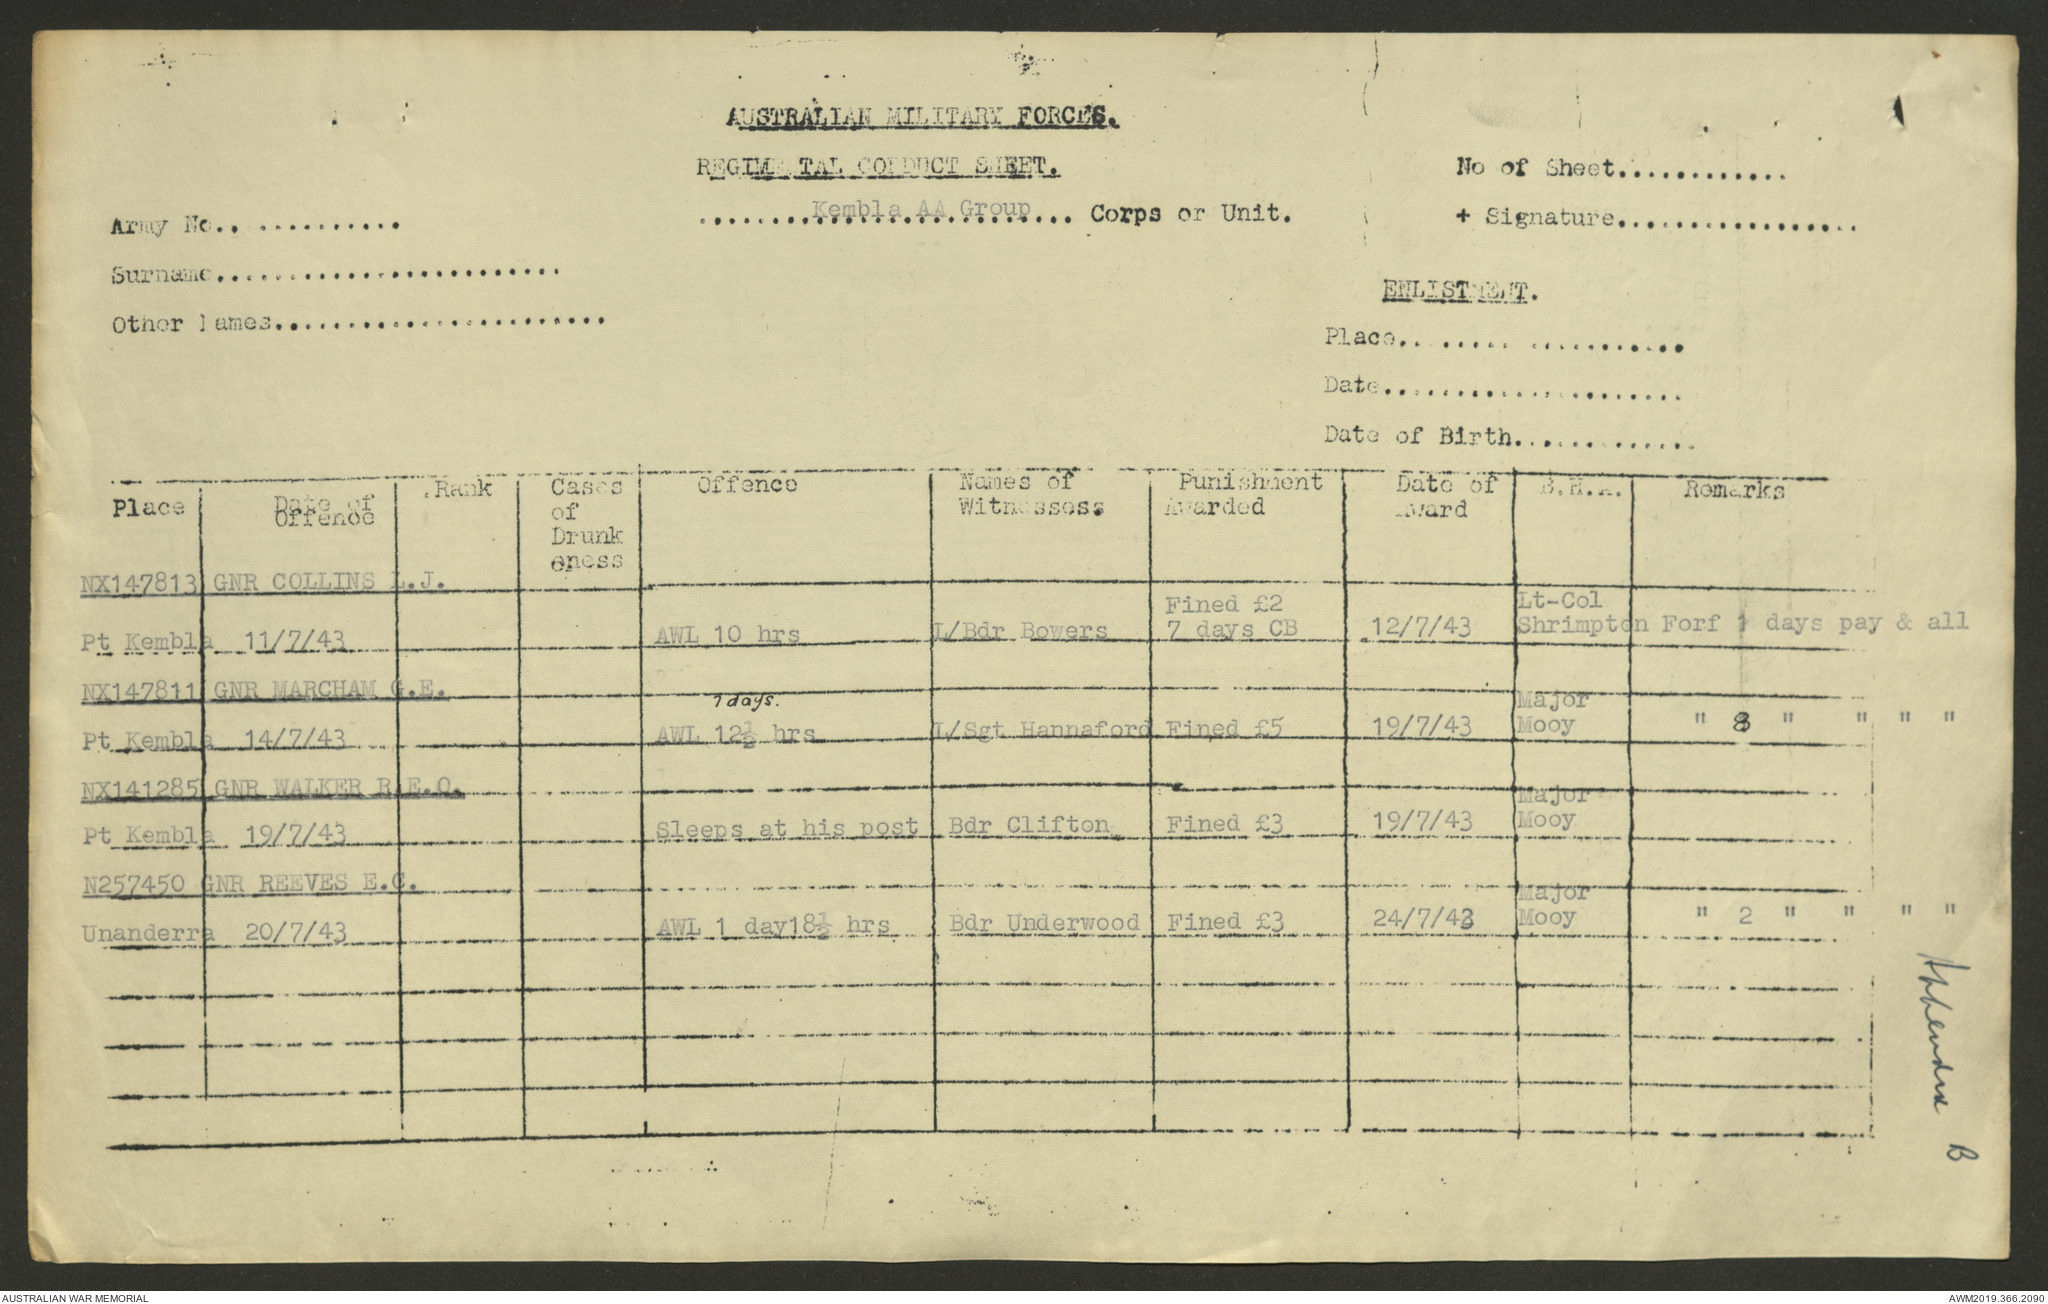 AUSTRALIAN MILITARY FORCES.
REGIMENTAL CONDUCT SHEET.
No of Sheet............
Kembla AA Group Corps or Unit.
Army No.............
+ Signature.................
Surname........................
ENLISTMENT.
Other Names.......................
Place....................
Date.....................
Date of Birth.............
Place Date of Offence Rank Cases of Drunk eness Offence Names of Witnessess Punishment Awarded Date of Award B.H.A. Remarks
NX147813 GNR COLLINS L.J.
Pt Kembla 11/7/43 AWL 10 hrs L/Bdr Bowers Fined £2 7 days CB 12/7/43 Lt-Col Shrimpton Forf 1 days pay & all
NX147811 GNR MARCHAM G.E.
Pt Kembla 14/7/43 AWL 7 days. 12½ hrs L/Sgt Hannaford Fined £5 19/7/43 Major Mooy " 8 " " " "
NX141285 GNR WALKER R.E.O.
Pt Kembla 19/7/43 Sleeps at his post Bdr Clifton Fined £3 19/7/43 Major Mooy
N257450 GNR REEVES E.C.
Unanderra 20/7/43 AWL 1 day18½ hrs Bdr Underwood Fined £3 24/7/43 Major Mooy " 2 " " " "
Appendix B
AUSTRALIAN WAR MEMORIAL
AWM2019.366.2090